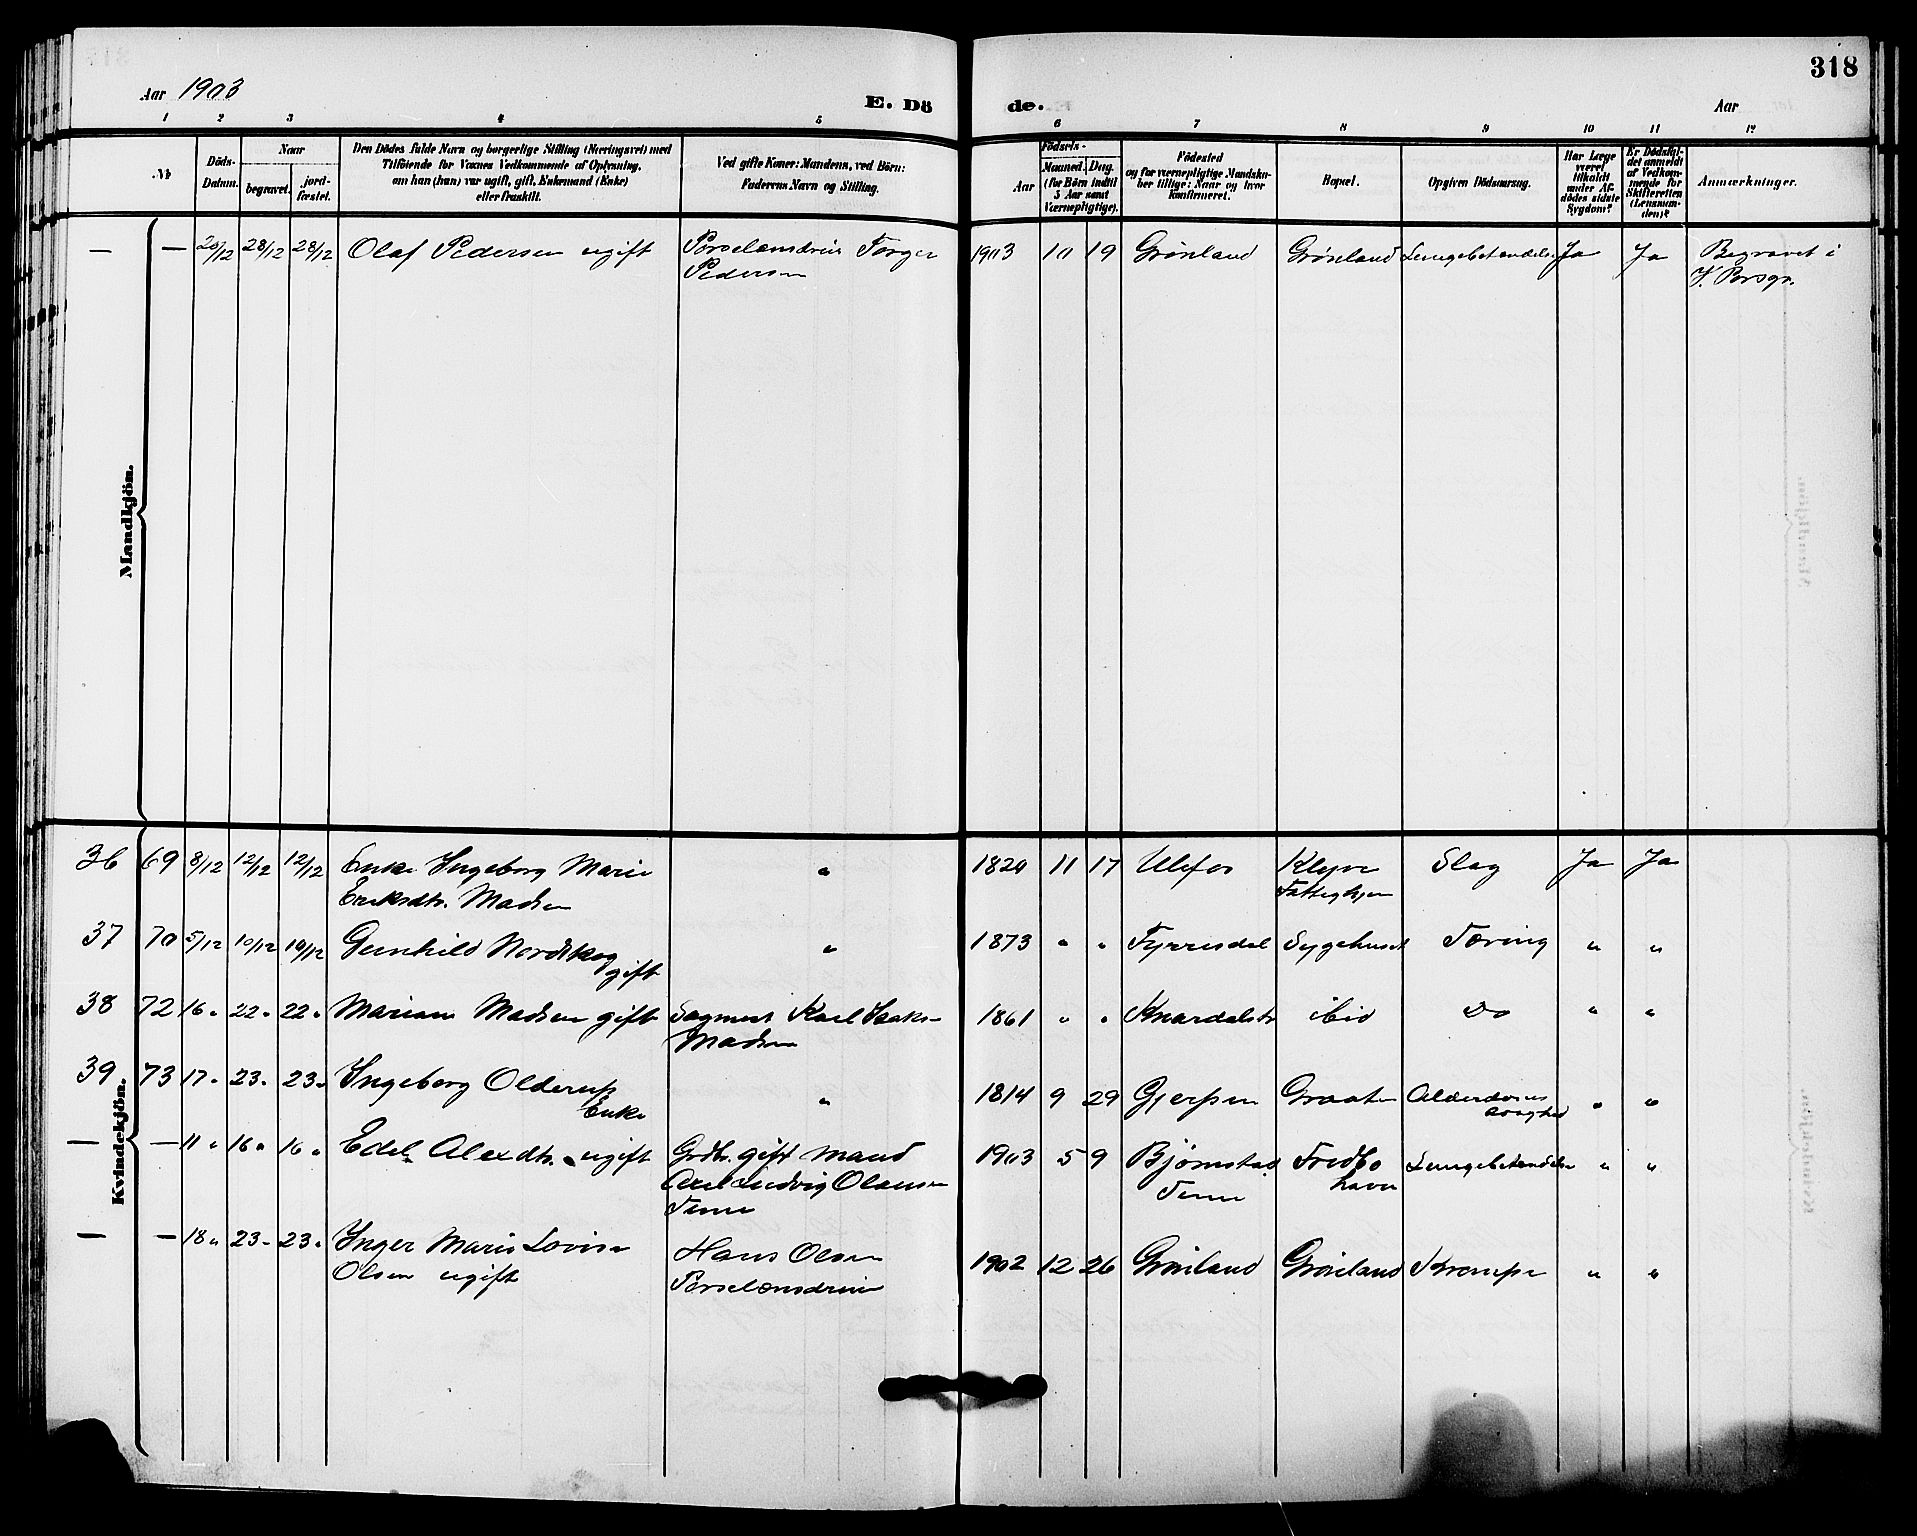 318
Aar 1903
E. Dö
de.
Aar
1 2 3 4 5 6 7 8 9 10 11 12
№
Döds-
Datum.
Naar
begravet.
jord-
fæstet.
Den Dödes fulde Navn og borgerlige Stilling (Næringsvei) med
Tilföiende for Voxnes Vedkommende af Oplysning,
om han (hun) var ugift, gift, Enkemand (Enke)
eller fraskilt.
Ved gifte Koner: Mandens, ved Börn:
Faderens Navn og Stilling.
Födsels-
Aar
Maaned. Dag.
(for Börn indtil
5 Aar samt
Værnepligtige).
Födested
og for værnepligtige Mandskaber
tillige: Naar og hvor
konfirmeret.
Bopæl.
Opgiven Dödsaarsag.
Har Læge
været
tilkaldt
under Af-
dödes sidste
Sygdom?
Er Dödsfal-
det anmeldt
af Vedkom-
mende for
Skifteretten
(Lensman-
den)?
Anmærkninger.
Mandkjön.
— — 20/12 28/12 28/12 Olaf Pedersen ugift Porselænsdreier Torger 1903 10 19 Grønland Grønland Lungebetændelse Ja Ja Begravet i
Pedersen V. Porsgr.
Kvindekjön.
36 69 8/12 12/12 12/12 Enke Ingeborg Marie " 1820 11 17 Ulefos Klyve Slag Ja Ja
Eriksdtr. Madsen Fattighjem
37 70 5/12 10/12 10/12 Gunhild Nordskog " 1873 " " Tyrrisdal Sygehuset Tæring " "
gift
38 72 16 " 22 " 22 " Mariane Madsen gift Sagmest Karl Isaks- 1861 " " Knardalstr ibid Do " "
Madsen
39 73 17 " 23 " 23 " Ingeborg Olderup " 1814 9 29 Gjerpen Graaten Alderdoms " "
Enke svaghed
— — 11 " 16 " 16 " Edel Alexdtr. ugift Grdbr. gift mand 1903 5 9 Bjørnstad Fredbo Lungebetændelse " "
Ludvig Olausen havn
— — 18 " 23 " 23 " Inger Marie Lovise Hans Olsen 1902 12 26 Grønland Grønland Krampe " "
Olsen ugift Porselænsdreier